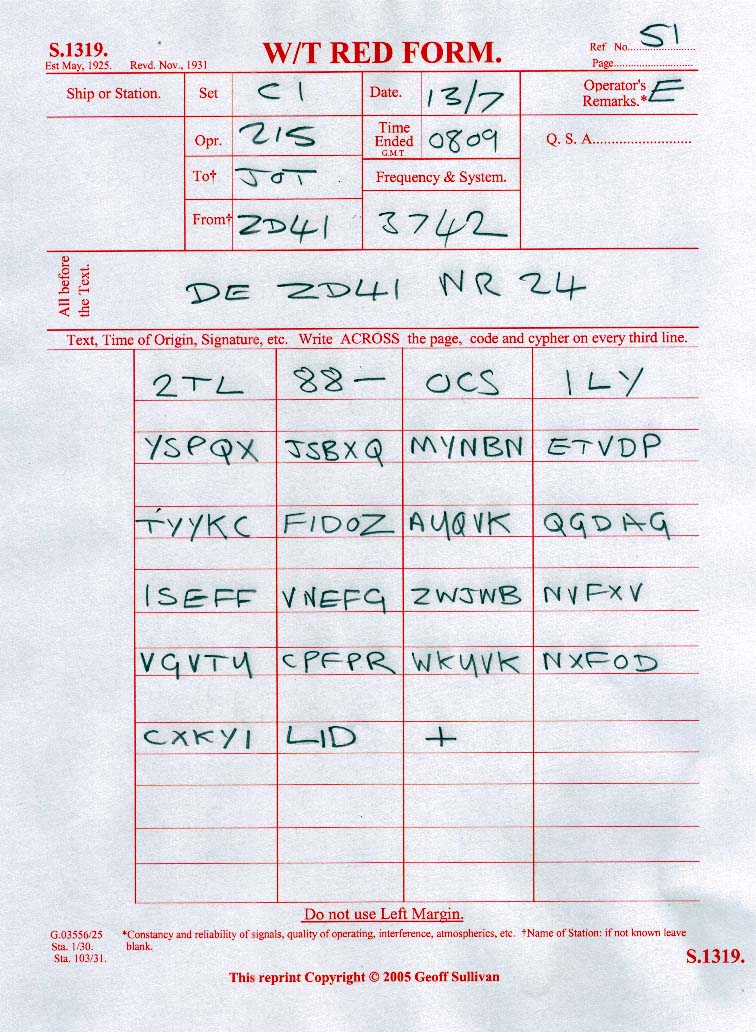 S.1319. W/T RED FORM. Ref No. 51
Est May, 1925. Revd. Nov., 1931 Page
Ship or Station. Set C1 Date. 13/7 Operator's Remarks.* E
Opr. 215 Time Ended G.M.T. 0809 Q. S. A.
To† JOT Frequency & System.
From† ZD41 3742
All before the Text. DE ZD41 NR 24
Text, Time of Origin, Signature, etc. Write ACROSS the page, code and cypher on every third line.
2TL 88— OCS ILY
YSPQX JSBXQ MYNBN ETVDP
TYYKC FIDOZ AYQVK QGDAG
ISEFF VNEFG ZWJWB NVFXV
VGVTY CPFPR WKYVK NXFOD
CXKYI LID +
Do not use Left Margin.
G.03556/25 *Constancy and reliability of signals, quality of operating, interference, atmospherics, etc. †Name of Station: if not known leave
Sta. 1/30. blank.
Sta. 103/31. S.1319.
This reprint Copyright © 2005 Geoff Sullivan